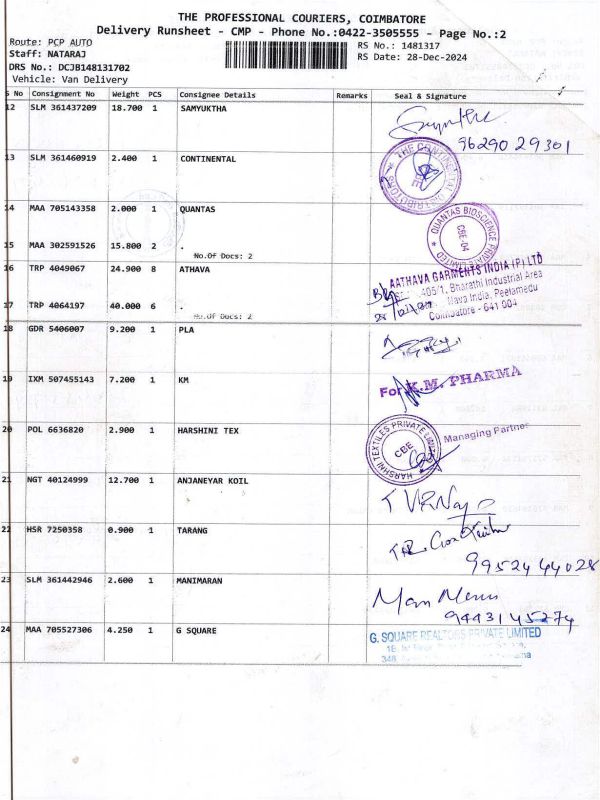 THE PROFESSIONAL COURIERS, COIMBATORE
Delivery Runsheet - CMP - Phone No.:0422-3505555 - Page No.:2
Route: PCP AUTO
RS No.: 1481317
Staff: NATARAJ
RS Date: 28-Dec-2024
DRS No.: DCJB148131702
Vehicle: Van Delivery
S No Consignment No Weight PCS Consignee Details Remarks Seal & Signature
12 SLM 361437209 18.700 1 SAMYUKTHA
96290 29301
13 SLM 361460919 2.400 1 CONTINENTAL
THE CONTINENTAL DISTRIBUTORS
14 MAA 705143358 2.000 1 QUANTAS
QUANTAS BIOSCIENCE PRIVATE LIMITED
CBE-04
15 MAA 302591526 15.800 2 .
No.Of Docs: 2
16 TRP 4049067 24.900 8 ATHAVA
AATHAVA GARMENTS INDIA (P) LTD
405/1, Bharathi Industrial Area
Nava India, Peelamedu
Coimbatore - 641 004
17 TRP 4064197 40.000 6 .
No.Of Docs: 2
18 GDR 5406007 9.200 1 PLA
19 IXM 507455143 7.200 1 KM
For K.M. PHARMA
20 POL 6636820 2.900 1 HARSHINI TEX
HARSHNI TEXTILES PRIVATE LIMITED
CBE
Managing Partner
21 NGT 40124999 12.700 1 ANJANEYAR KOIL
22 HSR 7250358 0.900 1 TARANG
99524 44028
23 SLM 361442946 2.600 1 MANIMARAN
94431 45274
24 MAA 705527306 4.250 1 G SQUARE
G. SQUARE REALTORS PRIVATE LIMITED